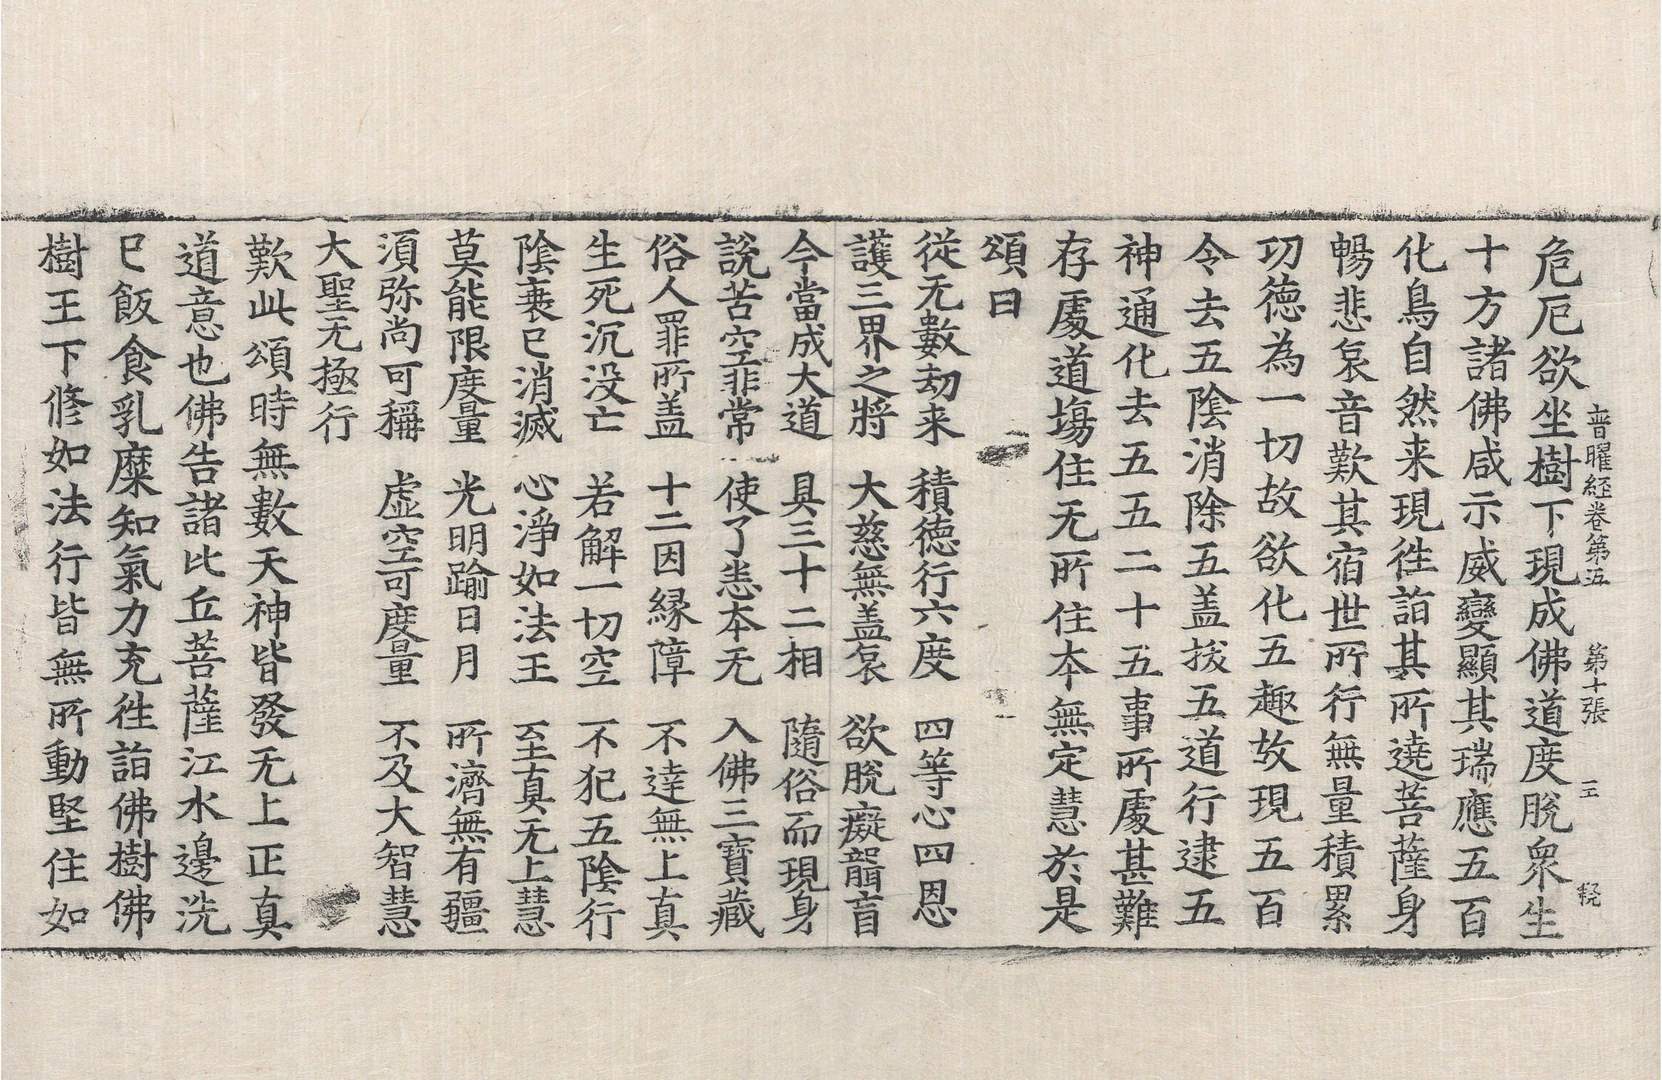 普曜經卷第五　第十張　王
危厄欲坐樹下現成佛道度脫衆生
十方諸佛咸示威變顯其瑞應五百
化鳥自然来現徃詣其所遶菩薩身
暢悲哀音歎其宿世所行無量積累
功德為一切故欲化五趣故現五百
令去五陰消除五盖拔五道行逮五
神通化去五五二十五事所處甚難
存處道塲住无所住夲無定慧於是
頌曰
從无數劫来　積德行六度　四等心四恩
護三界之將　大慈無盖哀　欲脫癡聾盲
今當成大道　具三十二相　隨俗而現身
說苦空非常　使了恚夲无　入佛三寶藏
俗人罪所盖　十二因縁障　不達無上真
生死沉没亡　若解一切空　不犯五陰行
陰衰已消滅　心淨如法王　至真无上慧
莫能限度量　光明踰日月　所濟無有疆
須弥尚可稱　虚空可度量　不及大智慧
大聖无極行
歎此頌時無數天神皆發无上正真
道意也佛告諸比丘菩薩江水邊洗
已飯食乳糜知氣力充徃詣佛樹佛
樹王下修如法行皆無所動堅住如